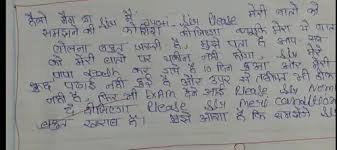 हैलो मैडम या Sir मैं Sir Please मेरी बातों को
समझने की की कोशिश मेरे ये
बोलना बहुत जरूरी है, मुझे पता है आप सब
को मेरी बातों पर यकीन नहीं होगा, Sir मेरे
पापा death कर गये है 10 दिन हुआ और मेरी
कुछ पढाई नहीं हुई है और ऊपर से तबियत भी ठीक
नहीं है, फिर भी Exam देने आई Please Sir
दे दीजिएगा Please Sir मेरा condition
बहुत खराब है। मुझे आशा है कि समझेंगे Sir